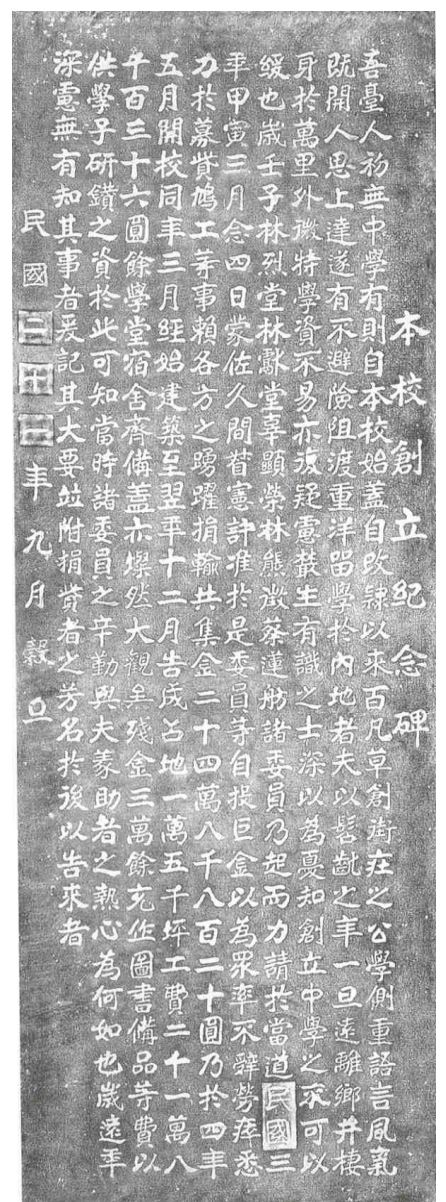 本校創立紀念碑
吾臺人初無中學有則自本校始蓋自改隸以來百凡草創街庄之公學側重語言風氣
既開人思上達遂有不避險阻渡重洋留學於內地者夫以髫齡之年一旦遠離鄉井棲
身於萬里外微特學資不易亦復疑慮叢生有識之士深以為憂知創立中學之不可以
緩也歲壬子林烈堂林獻堂辜顯榮林熊徵蔡蓮舫諸委員乃起而力請於當道民國三
年甲寅三月念四日蒙佐久間督憲許准於是委員等自投巨金以為眾率不辭勞瘁悉
力於募貲鳩工等事賴各方之踴躍捐輸共集金二十四萬八千八百二十圓乃於四年
五月開校同年三月經始建築至翌年十二月告成占地一萬五千坪工費二千一萬八
千百三十六圓餘學堂宿舍齊備蓋亦燦然大觀矣殘金三萬餘充作圖書備品等費以
供學子研鑽之資於此可知當時諸委員之辛勤與夫羕助者之熱心為何如也歲遠年
深慮無有知其事者爰記其大要竝附捐貲者之芳名於後以告來者
民國二十一年九月穀旦